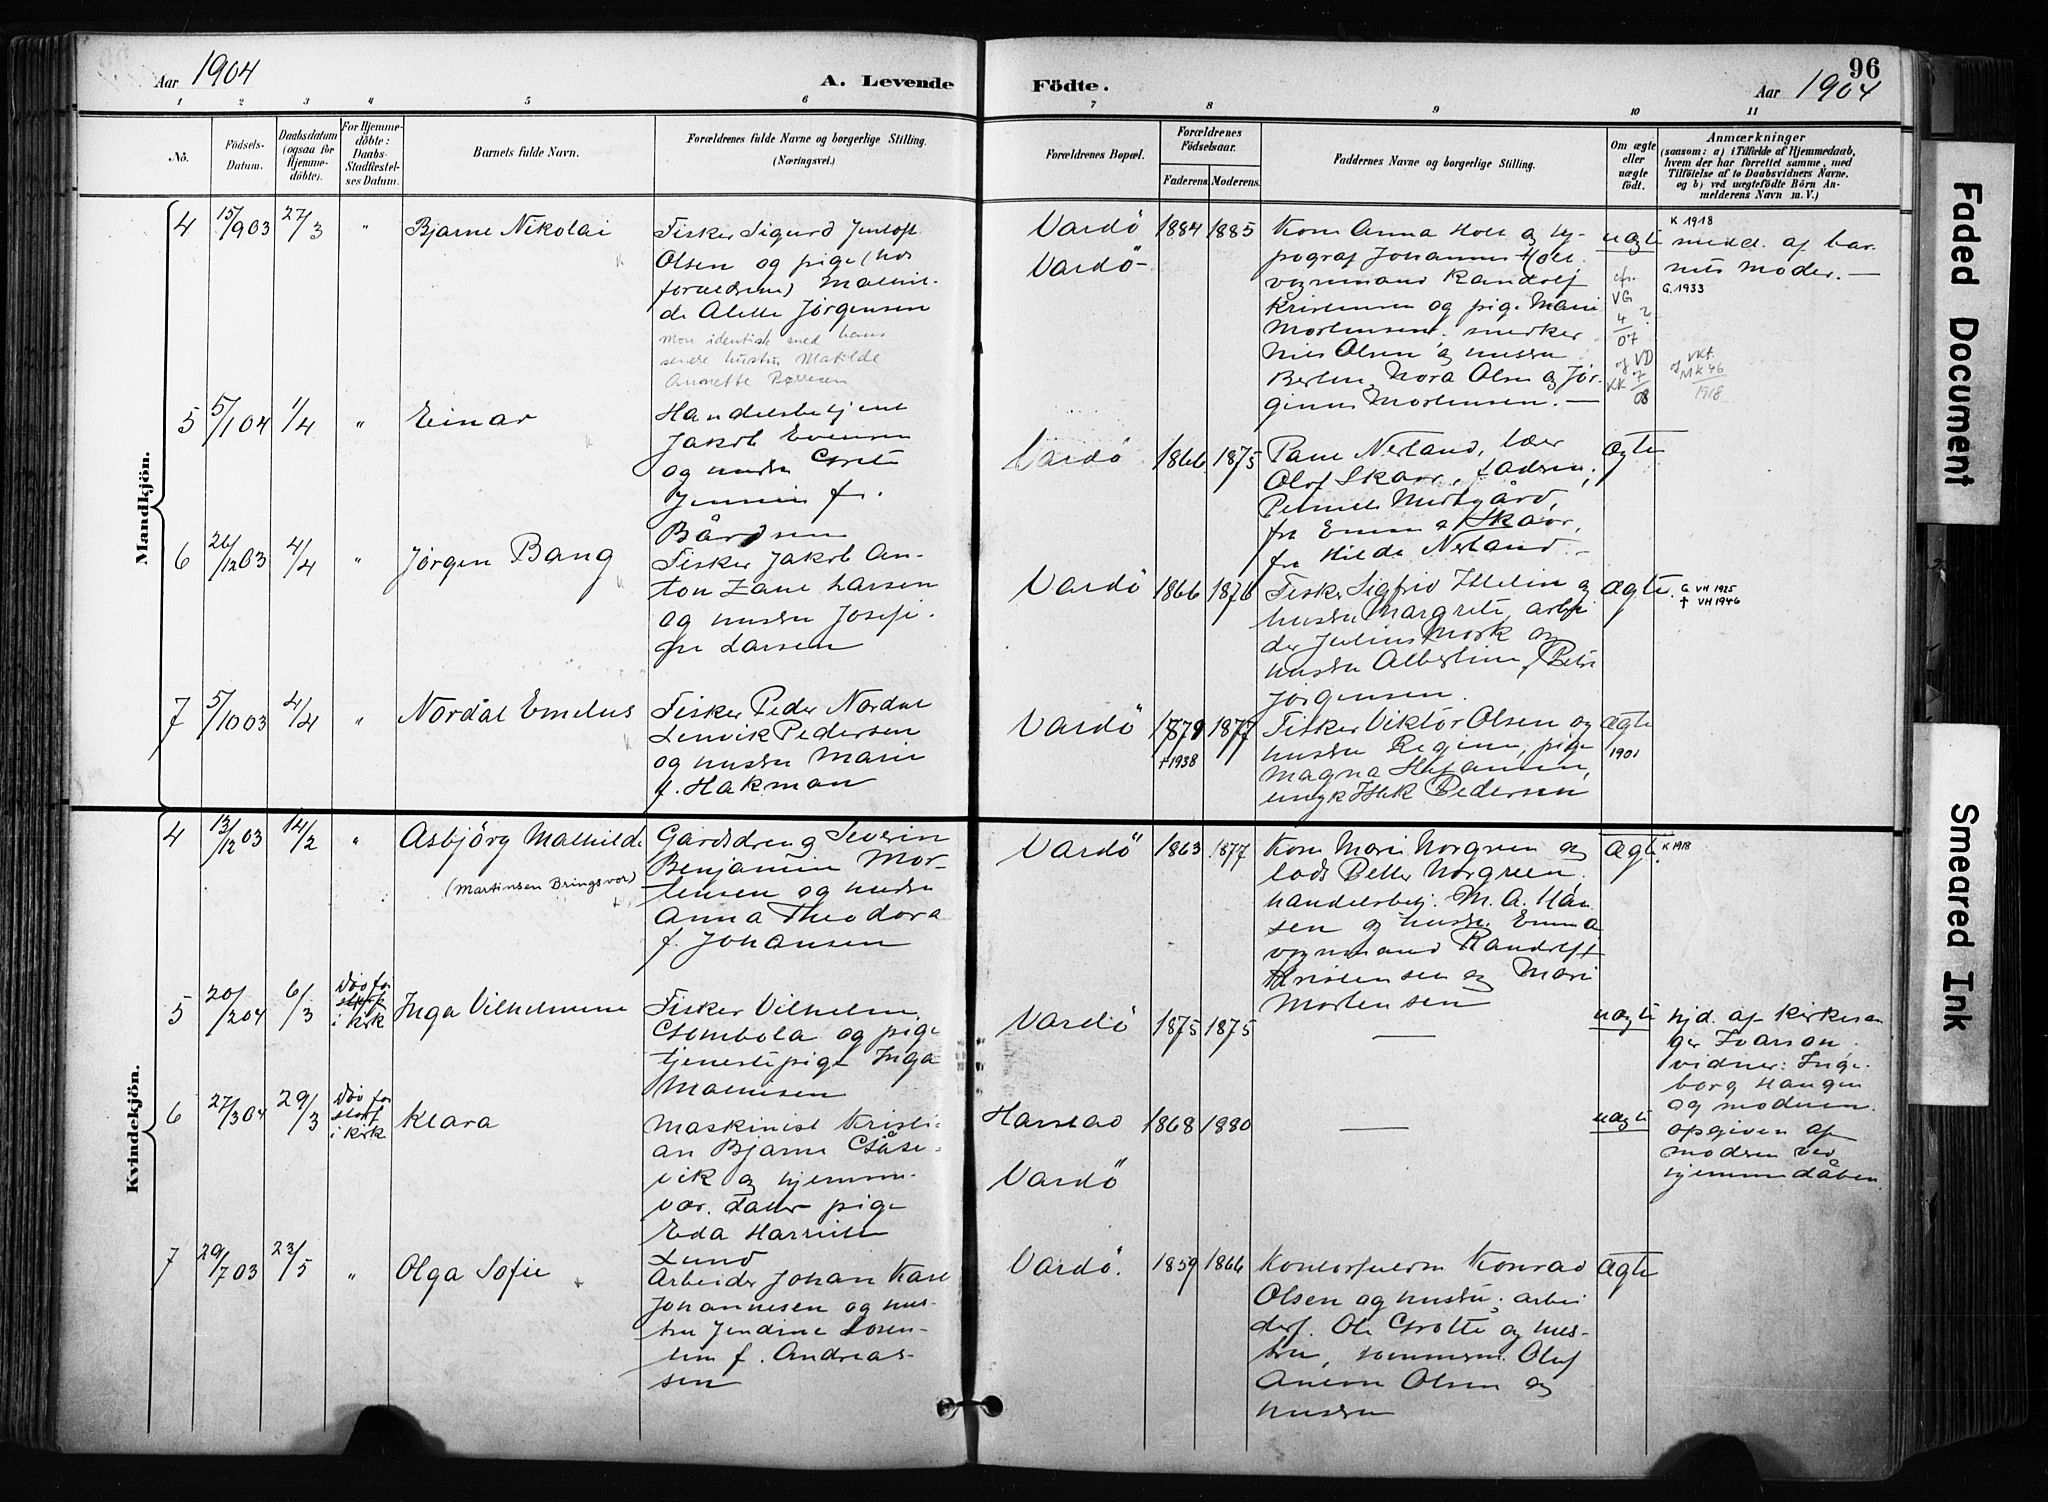 Aar 1904
A. Levende
Födte.
96
Aar 1904
1 2 3 4 5 6 7 8 9 10 11
No.
Födsels-
Datum.
Daabsdatum
(ogsaa for
Hjemme-
döbte).
For Hjemme-
döbte:
Daabs-
Stadfæstel-
ses Datum.
Barnets fulde Navn.
Forældrenes fulde Navne og borgerlige Stilling.
(Næringsvei.)
Forældrenes Bopæl.
Forældrenes
Födselsaar.
Faderens. Moderens.
Faddernes Navne og borgerlige Stilling.
Om ægte
eller
uægte
födt.
Anmærkninger
(saasom: a) i Tilfælde af Hjemmedaab,
hvem der har forrettet samme, med
Tilföielse af to Daabsvidners Navne.
og b) ved uægtefödte Börn An-
melderens Navn m. V.)
Mandkjön.
4 15/9 03 27/3 " Bjarne Nikolai
Fisker Sigurd
Olsen og pige (hos
forældrene) Mathil-
de Alette Jørgensen
mon identisk med hans
senere hustru Matilde
Vardö
Vardö
1884 1885
Kone Anna Holt og ty-
pograf Johannes Holt
vognmand Randolf
Kristensen og pige Marie
Mortensen. snedker
Nils Olsen og hustru
Nora Olsen og Jør-
Mortensen. —
uægte
cfr.
VG
4/07 ?
og VD
KK 7/08
K 1918
medd. af bar-
nets moder. —
G. 1933
VKf.
MK 46
1918
5 5/1 04 1/4 " Einar
Handelsbetjent
Jakob Evensen
og hustru Grete
f.
Bårdsen
Vardö 1866 1875
Nerland, lærer
Olaf Skaar,
Pernille
fru Emma Skaar,
fr. Hilda Nerland. —
ægte
6 26/12 03 4/4 " Jørgen Bang
Fisker Jakob An-
ton Zane Larsen
og hustru Josefi-
ne Larsen
Vardö 1866 1876
Fisker Sigfrid og
hustru Margrete, arbei
der Julius Mork og
hustru Albertine,
Jørgensen.
ægte.
G VH 1925
† VH 1946
7 5/10 03 4/4 " Nordal Emelius
Fisker Peder Nordal
Lenvik Pedersen
og hustru Marie
f. Hakman
Vardö 1879 1877
† 1938
Fisker Viktor Olsen og
hustru Regine, pige
Magna
Pedersen
ægte
1901
Kvindekjön.
4 13/12 03 14/2 " Asbjörg Mathilde
(Martinsen Bringsvor)
Gårdsdreng Severin
Benjamin Mor-
tensen og hustru
Anna Theodora
f. Johansen
Vardö 1863 1877
Kone Marie Norgren og
lods Petter Norgreen.
handelsbetj. M. A. Han
sen og hustru Emma
vognmand Randolf
Kristensen og Marie
Mortensen
ægte
K 1918
5 20/2 04 6/3 Död før
stadf.
i kirk
Inga Vilhelmine
Fisker Vilhelm
Gombola og pige
tjenestepige Inga
Vardö 1875 1875 —
uægte
hjd. af kirkesan
ger Ivarson.
vidner: Inge-
borg Haugen
og moderen.
6 27/3 04 29/3 Död før
stadf
i kirk
Klara
Maskinist Kristi-
an Bjarne Gåse-
vik og hjemme-
vær. datter pige
Eda
Lund
Harstad
Vardö
1868 1880 —
uægte
opgiven af
modren ved
hjemmedåben.
7 29/7 03 23/5 " Olga Sofie
Arbeider Johan Karl
Johannesen og hus-
tru Jendine Loren-
tine f. Andreas-
sen
Vardö. 1859 1866
Konrad
Olsen og hustru, arbei
derf. Ole Grotte og hus-
tru, tømmerm. Oluf
Olsen og
hustru
ægte
Faded Document
Smeared Ink